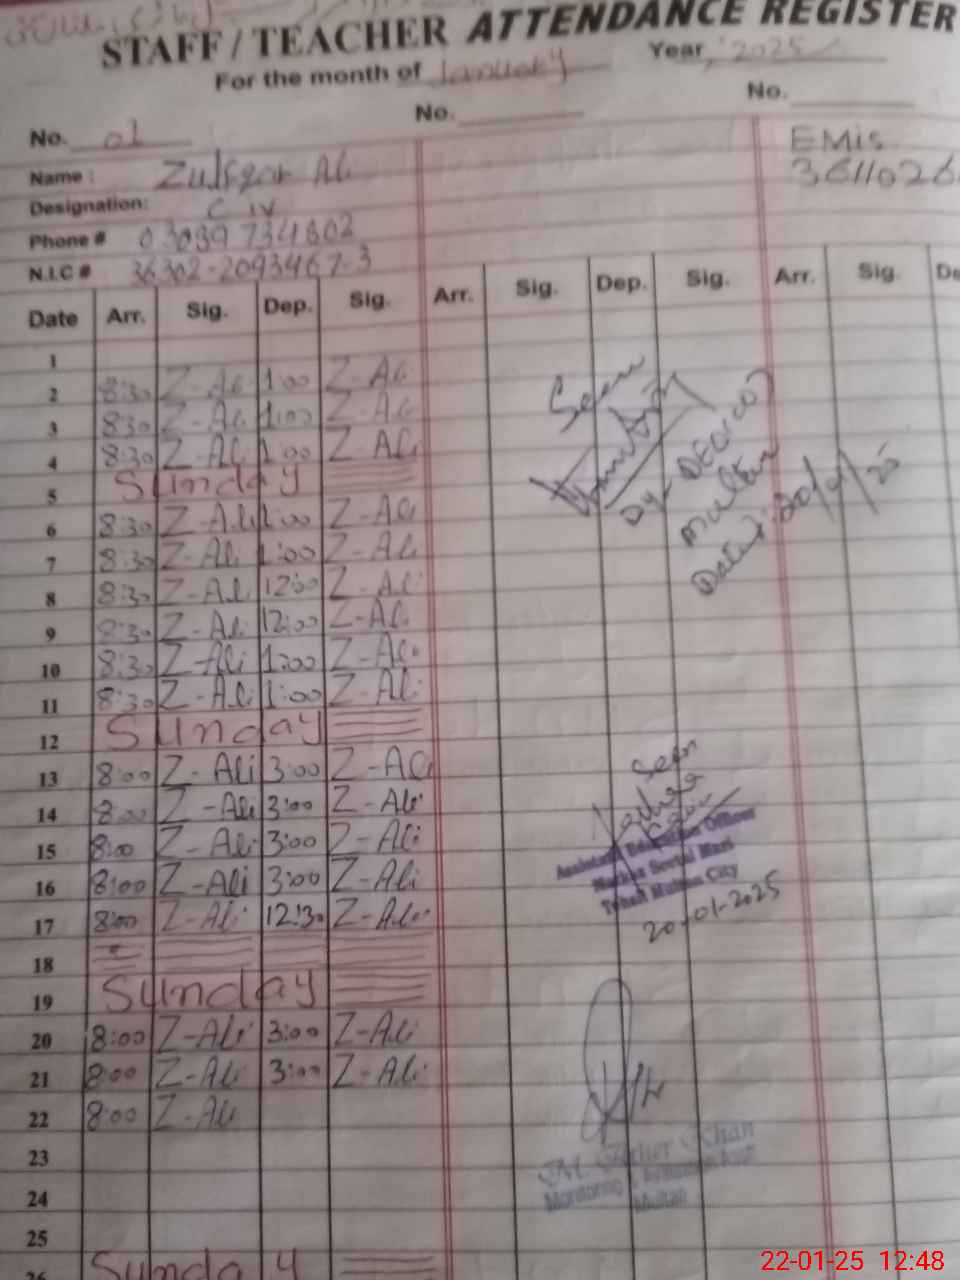 STAFF / TEACHER ATTENDANCE REGISTER
For the month of January Year 2025
No. 01 No. No.
EMis
Name : Zulfqar Ali 3611026
Designation: C IV
Phone # 03039734802
N.I.C # 36302-2093467-3
Date Arr. Sig. Dep. Sig. Arr. Sig. Dep. Sig. Arr. Sig. De
1
2 8:30 Z-Ali 1:00 Z-Ali
3 8:30 Z-Ali 1:00 Z-Ali
4 8:30 Z-Ali 1:00 Z-Ali
5 Sunday
6 8:30 Z-Ali 1:00 Z-Ali
7 8:30 Z-Ali 1:00 Z-Ali
8 8:30 Z-Ali 12:00 Z-Ali
9 8:30 Z-Ali 12:00 Z-Ali
10 8:30 Z-Ali 1:00 Z-Ali
11 8:30 Z-Ali 1:00 Z-Ali
12 Sunday
13 8:00 Z-Ali 3:00 Z-Ali
14 8:00 Z-Ali 3:00 Z-Ali
15 8:00 Z-Ali 3:00 Z-Ali
16 8:00 Z-Ali 3:00 Z-Ali
17 8:00 Z-Ali 12:30 Z-Ali
18
19 Sunday
20 8:00 Z-Ali 3:00 Z-Ali
21 8:00 Z-Ali 3:00 Z-Ali
22 8:00 Z-Ali
23
24
25
26 Sunday
Seen
Dy. DEO
Multan
Dated: 20/01/25
Seen
Assistant Education Officer
Markaz
Tehsil Multan City
20-01-2025
Khan
Monitoring & Evaluation Asst
Multan
22-01-25 12:48